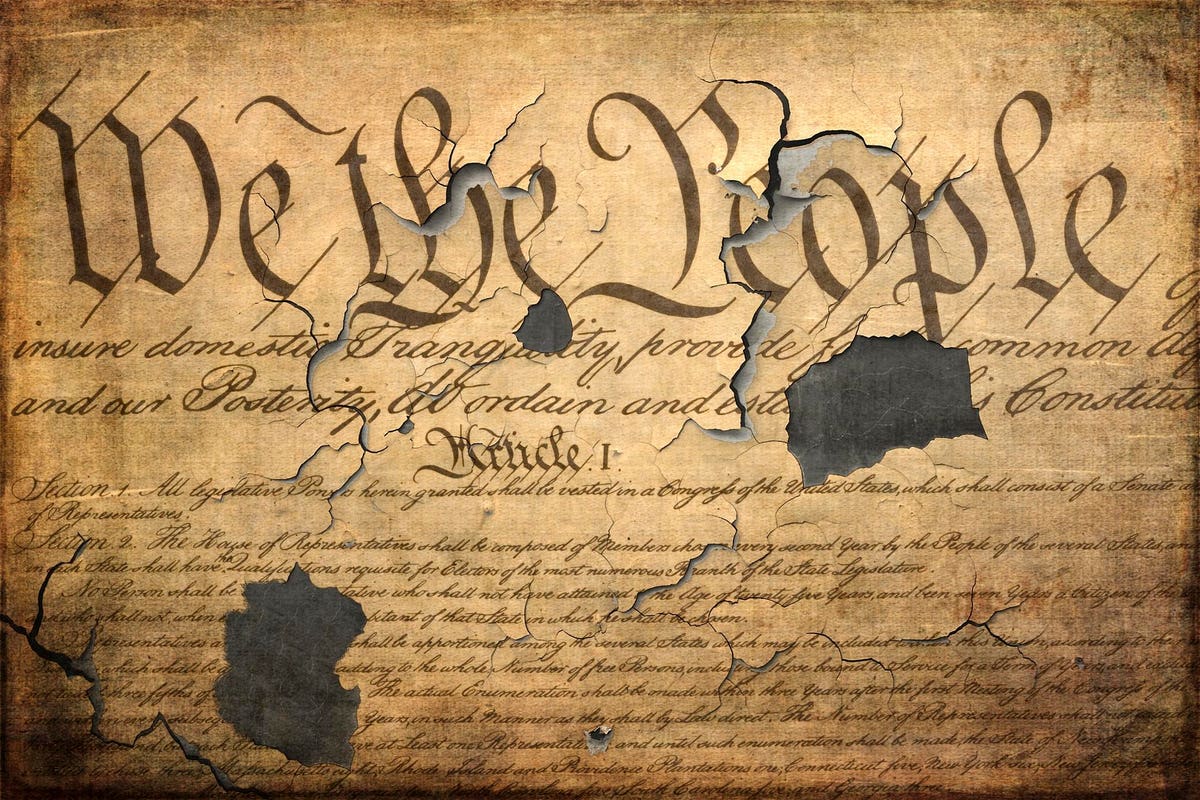 We the People
insure domestic Tranquility, provide common
and our Posterity, do ordain and Constitut
Article. I.
Section. 1. All legislative Powers herein granted shall be vested in a Congress of the United States, which shall consist of a Senate
of Representatives.
Section. 2. The House of Representatives shall be composed of Members chosen every second Year by the People of the several States,
in each State shall have the Qualifications requisite for Electors of the most numerous Branch of the State Legislature.
No Person shall be tative who shall not have attained to the Age of twenty five Years, and been seven Years a Citizen of the
shall not, when bitant of that State in which he shall be chosen.
Representatives shall be apportioned among the several States which may be included within this Union, according to
which shall be adding to the whole Number of free Persons, including those bound to Service for a Term of Years, and
three fifths of The actual Enumeration shall be made within three Years after the first Meeting of the Congress of the
Years, in such Manner as they shall by Law direct. The Number of Representatives shall not
at Least one Representative; and until such enumeration shall be made, the State of
Massachusetts eight, Rhode Island and Providence Plantations one, Connecticut five, New York six, New
five, South Carolina five, and Georgia three.